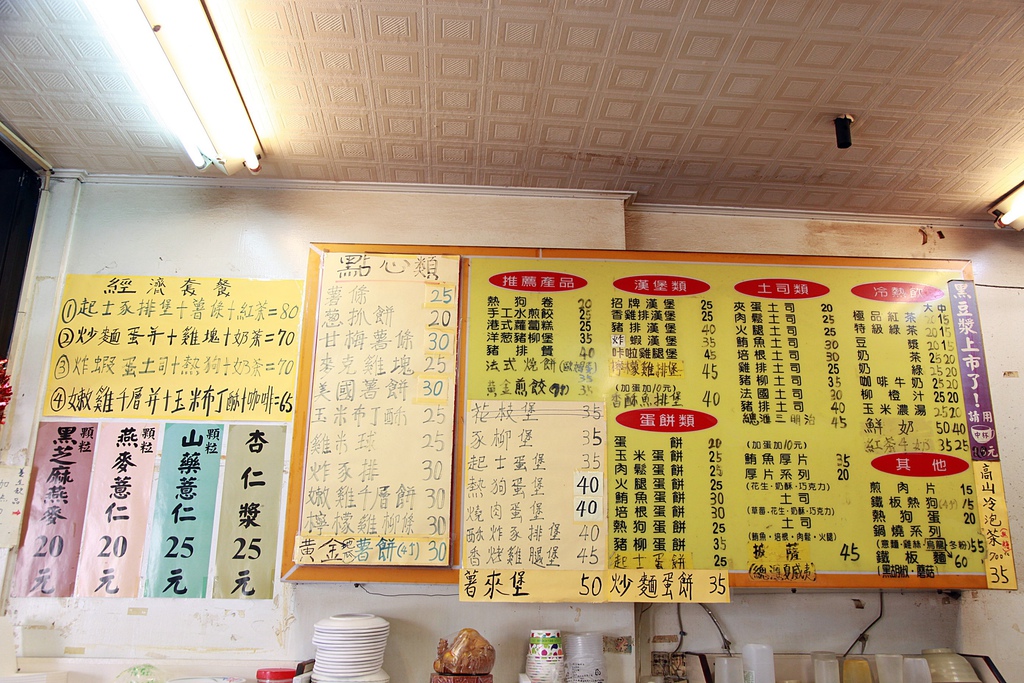 經濟套餐
①起士豕排堡+薯條+紅茶=80
②炒麵蛋并+雞塊+奶茶=70
③炸蝦蛋土司+熱狗+奶茶=70
④嫩雞千層并+玉米布丁酥+咖啡=65
顆粒
黑芝麻燕麥
20元
顆粒
燕麥薏仁
20元
顆粒
山藥薏仁
25元
杏仁漿
25元
點心類
薯條 25
蔥抓餅 20
甘梅薯條 30
麥克雞塊 25
美國薯餅 30
玉米布丁酥 25
雞米球 25
炸豕排 30
嫩雞千層餅 30
檸檬雞柳條 30
薯餅(4付) 30
推薦產品
熱狗卷 20
手工水煎餃
港式蘿蔔糕
洋蔥豬柳
豬排餐 40
法式燒餅
黃金煎餃
花枝堡 35
豕柳堡 35
起士蛋堡 35
熱狗蛋堡 40
燒肉蛋堡 40
酥炸豕排堡 40
香烤雞腿堡 45
薯來堡 50
漢堡類
招牌漢堡 25
香雞排漢堡 25
豬排漢堡 40
炸蝦漢堡 35
咔啦雞腿堡 45
檸檬雞排堡 45
(加蛋加10元)
香酥魚排堡 40
蛋餅類
蛋餅 20
玉米蛋餅 25
肉鬆蛋餅 25
火腿蛋餅 25
鮪魚蛋餅 30
培根蛋餅 30
熱狗蛋餅 25
豬柳蛋餅 30
起士蛋餅 25
炒麵蛋餅 35
土司類
夾蛋土司 20
肉鬆土司 25
火腿土司 25
鮪魚土司 30
培根土司 30
燻雞土司 35
豬柳土司 30
法國土司 30
豬排土司 40
總匯三明治 45
(加蛋加10元)
鮪魚厚片 35
厚片系列 20
(花生·奶酥·巧克力)
土司
(草莓·花生·奶酥·巧克力)
土司
(鮪魚·培根·肉鬆·火腿)
披薩 45
冷熱飲
大 中
極品紅茶 20 15
特級綠茶 20 15
豆漿 20 15
奶茶 25 20
奶綠 25 20
咖啡牛奶 25 20
柳橙汁 25 20
玉米濃湯 25 20
鮮奶 50 40
紅茶牛奶 35 25
其他
煎肉片 15
鐵板熱狗
熱狗蛋 20
鍋燒系列 55
鐵板麵 60
(黑胡椒·蘑菇)
黑豆漿上市了!
請用
高山冷泡茶
35